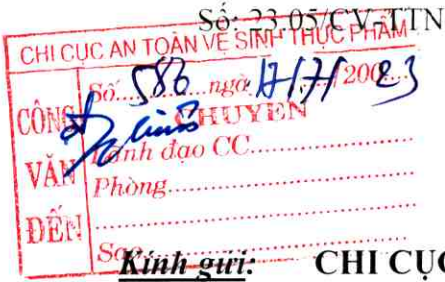 Số: 23.05/CV-TTN
CHI CỤC AN TOÀN VỆ SINH THỰC PHẨM
CÔNG VĂN ĐẾN
Số 586 ngà 17/7/200 23
CHUYỂN
Lãnh đạo CC
Phòng
Sao
Kính gửi: CHI CỤC